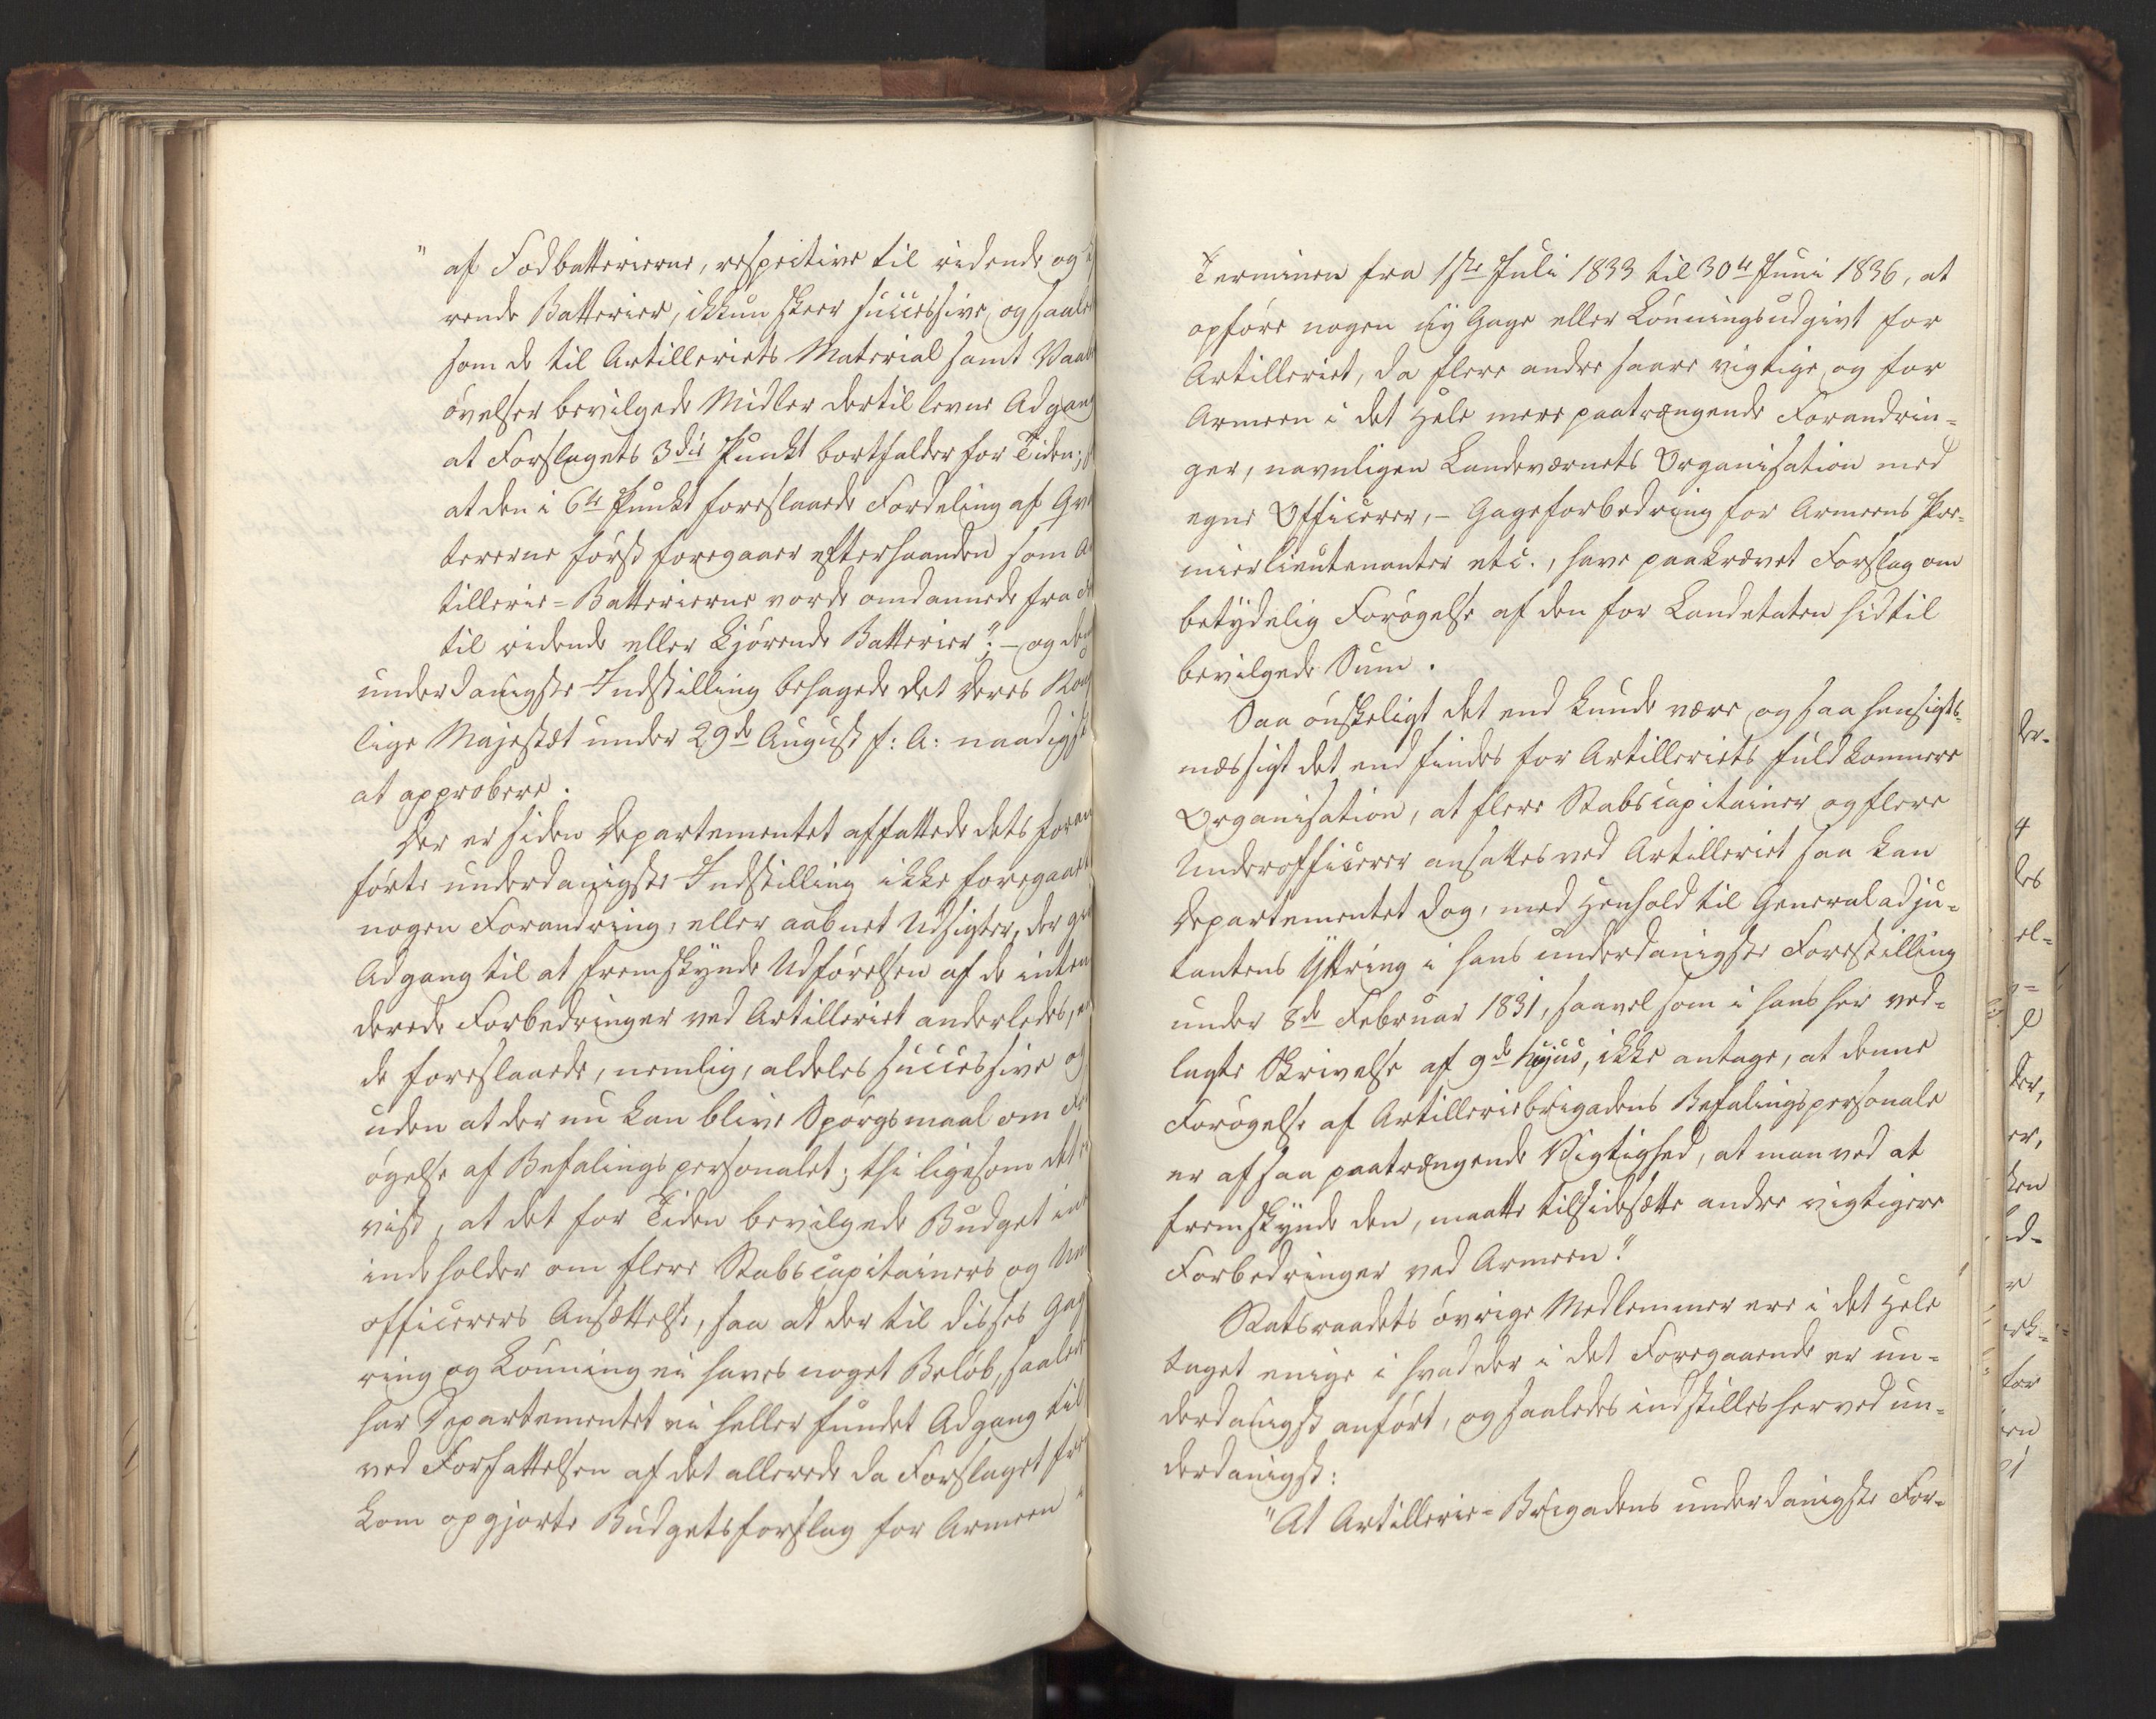 " af Fodbatterierne, respective til ridende og
rende Batterier, ikkun skeer successive, og saale
som de til Artilleriets Material samt Vaabe
øvelser bevilgede Midler dertil levne Adgang
at Forslagets 3die Punkt bortfalder for Tiden;
at den i 6te Punkt foreslaaede Fordeling af Qvar
tererne først foregaaer efterhaanden som Ar
tillerie=Batterierne vorde omdannede fra
til ridende eller kjørende Batterier"; – og denne
underdanigste Indstilling behagede det Deres Konge
lige Majestæt under 29de August f: A: naadigst
at approbere.
Der er siden Departementet affattede dets foran
førte underdanigste Indstilling ikke foregaaet
nogen Forandring, eller aabnet Udsigter, der
Adgang til at fremskynde Udførelsen af de inten
derede Forbedringer ved Artilleriet anderledes, en
de foreslaaede, nemlig, aldeles successive og
uden at der nu kan blive Spørgsmaal om For
øgelse af Befalingspersonalet; thi ligesom det er
vist, at det for Tiden bevilgede Budget intet
indeholder om flere Stabscapitainers og Un
officerers Ansættelse, saa at der til disses Gage
ring og Lønning ei haves noget Beløb, saaledes
har Departementet ei heller fundet Adgang til
ved Forfattelsen af det allerede da Forslaget frem
kom opgjorte Budgetsforslag for Armeen i
Terminen fra 1ste Juli 1833 til 30te Juni 1836, at
opføre nogen ny Gage eller Lønningsudgivt for
Artilleriet, da flere andre saare vigtige og for
Armeen i det Hele mere paatrængende Forandrin=
ger, navnligen Landeværnets Organisation med
egne Officerer, – Gageforbedring for Armeens Pre=
mierlieutenanter etc., have paakrævet Forslag om
betydelig Forøgelse af den for Landetaten hidtil
bevilgede Sum.
Saa ønskeligt det end kunde være og saa hensigts=
mæssigt det end findes for Artilleriets fuldkomnere
Organisation, at flere Stabscapitainer og flere
Underofficerer ansattes ved Artilleriet saa kan
Departementet dog, med Henhold til Generaladju=
tantens Yttring i hans underdanigste Forestilling
under 8de Februar 1831, saavelsom i hans her ved=
lagte Skrivelse af 9de hujus, ikke antage, at denne
Forøgelse af Artilleriebrigadens Befalingspersonale
er af saa paatrængende Vigtighed, at man ved at
fremskynde den, maatte tilsidesætte andre vigtigere
Forbedringer ved Armeen."
Statsraadets øvrige Medlemmer ere i det Hele
taget enige i hvad der i det Foregaaende er un=
derdanigst anført, og saaledes indstilles herved un=
derdanigst:
"At Artillerie=Brigadens underdanigste For=